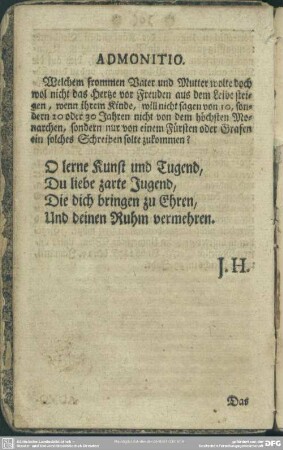 ADMONITIO.
Welchem frommen Vater und Mutter wolte doch
wol nicht das Hertze vor Freuden aus dem Leibe sprin-
gen, wenn ihrem Kinde, will nicht sagen von 10, son-
dern 20 oder 30 Jahren nicht von dem höchsten Mo-
narchen, sondern nur von einem Fürsten oder Grafen
ein solches Schreiben solte zukommen?
O lerne Kunst und Tugend,
Du liebe zarte Jugend,
Die dich bringen zu Ehren,
Und deinen Ruhm vermehren.
J. H.
Das
DFG